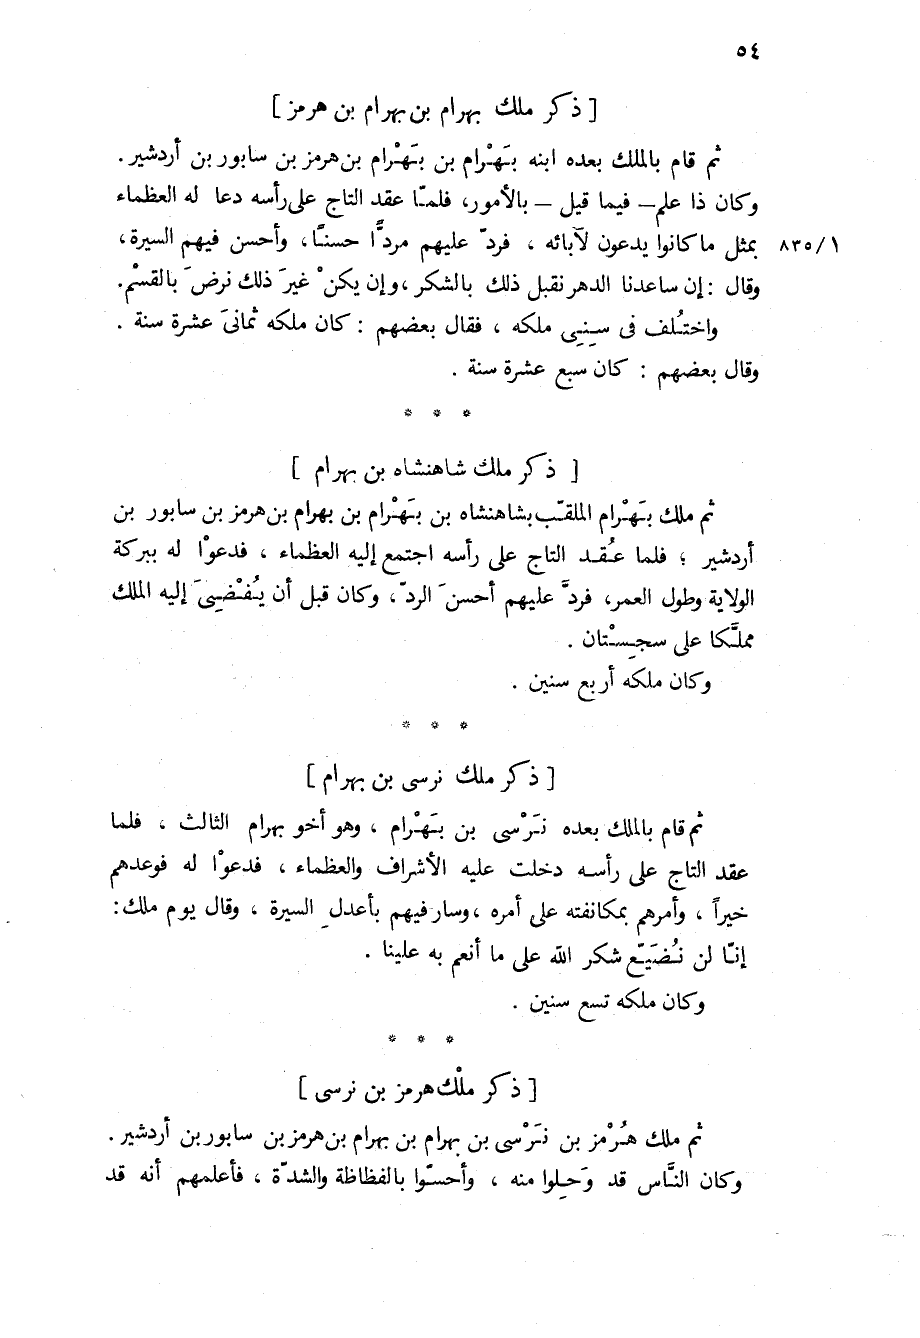 ٥٤
[ ذكر ملك بهرام بن بهرام بن هرمز ]
ثم قام بالملك بعده ابنه بَهْرام بن بَهْرام بن هرمز بن سابور بن أردشير .
وكان ذا علم – فيما قيل – بالأمور، فلمّا عقد التاج على رأسه دعا له العظماء
٨٣٥/١ بمثل ما كانوا يدعون لآبائه ، فردّ عليهم مردًّا حسنًا، وأحسن فيهم السيرة،
وقال : إن ساعدنا الدهر نقبل ذلك بالشكر ، وإن يكنْ غيرَ ذلك نرضَ بالقسْم.
واختُلف فى سِنِى ملكه ، فقال بعضهم : كان ملكه ثمانىَ عشرة سنة .
وقال بعضهم : كان سبع عشرة سنة .
* * *
[ ذكر ملك شاهنشاه بن بهرام ]
ثم ملك بَهْرام الملقّب بشاهنشاه بن بَهْرام بن بهرام بن هرمز بن سابور بن
أردشير ؛ فلما عُقد التاج على رأسه اجتمع إليه العظماء ، فدعوْا له ببركة
الولاية وطول العمر، فردَّ عليهم أحسنَ الردّ، وكان قبل أن يُفْضِىَ إليه الملك
مملَّكا على سجِسْتان .
وكان ملكه أربع سنين .
* * *
[ ذكر ملك نرسى بن بهرام ]
ثم قام بالملك بعده نَرْسى بن بَهْرام ، وهو أخو بهرام الثالث ، فلما
عقد التاج على رأسه دخلت عليه الأشراف والعظماء ، فدعوْا له فوعدهم
خيراً ، وأمرهم بمكانفته على أمره ، وسار فيهم بأعدلِ السيرة ، وقال يوم ملك:
إنّا لن نُضَيّع شكر الله على ما أنعم به علينا .
وكان ملكه تسع سنين .
* * *
[ ذكر ملْك هرمز بن نرسى ]
ثم ملك هُرْمز بن نَرْسى بن بهرام بن بهرام بن هرمز بن سابور بن أردشير .
وكان النَّاس قد وَحِلوا منه ، وأحسّوا بالفظاظة والشدّة ، فأعلمهم أنه قد